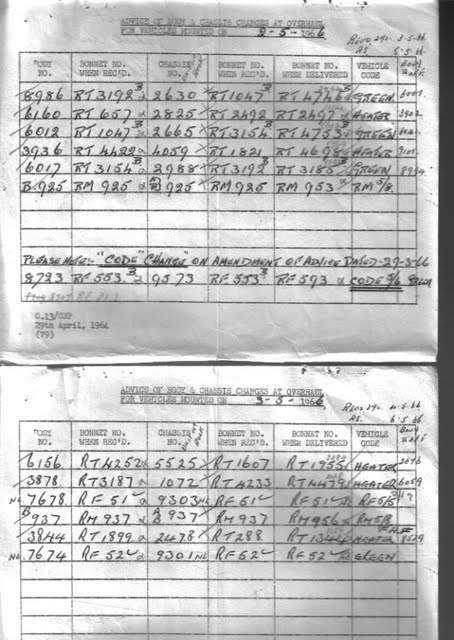 ADVICE OF BODY & CHASSIS CHANGES AT OVERHAUL
FOR VEHICLES MOUNTED ON 2-5-1966
RECD 29c. 3-5-66
AS. 5-5-66
BODY NO. BONNET NO. WHEN REC'D. CHASSIS NO. BONNET NO. BONNET NO. WHEN DELIVERED VEHICLE CODE
8986 RT3192 2630 RT1047 RT4746 GREEN
6160 RT657 2825 RT2492 RT2497 HEATER 3902
6012 RT1047 2665 RT3154 RT4753 GREEN
3936 RT4422 4059 RT1821 RT4698 HEATER
6017 RT3154 2988 RT3192 RT3185 GREEN
B.925 RM 925 925 RM925 RM 953 RM 5/8.
PLEASE NOTE:- "CODE CHANGE" ON AMENDMENT OF ADVICE DATED-29-3-66
8723 RF 553. B 9573 RF 553. B RF 593 CODE 5/6
C.13/GHP
29th April, 1964
(79)
ADVICE OF BODY & CHASSIS CHANGES AT OVERHAUL
FOR VEHICLES MOUNTED ON 3-5-1966
RECD 29c. 4-5-66
AS. 6-5-66
BODY NO. BONNET NO. WHEN REC'D. CHASSIS NO. BONNET NO. BONNET NO. WHEN DELIVERED VEHICLE CODE
6156 RT4252 5525 RT1607 RT1955 HEATER 3676
3878 RT3187 1072 RT4233 RT4479 HEATER 6059
7678 RF 51 9303 RF 51 RF 51 RF5/5
B 937 RM 937 937 RM937 RM956 RM5/8
3844 RT1899 2478 RT288 HEATER 8529
7674 RF 52 9301 RF 52 RF 52 GREEN